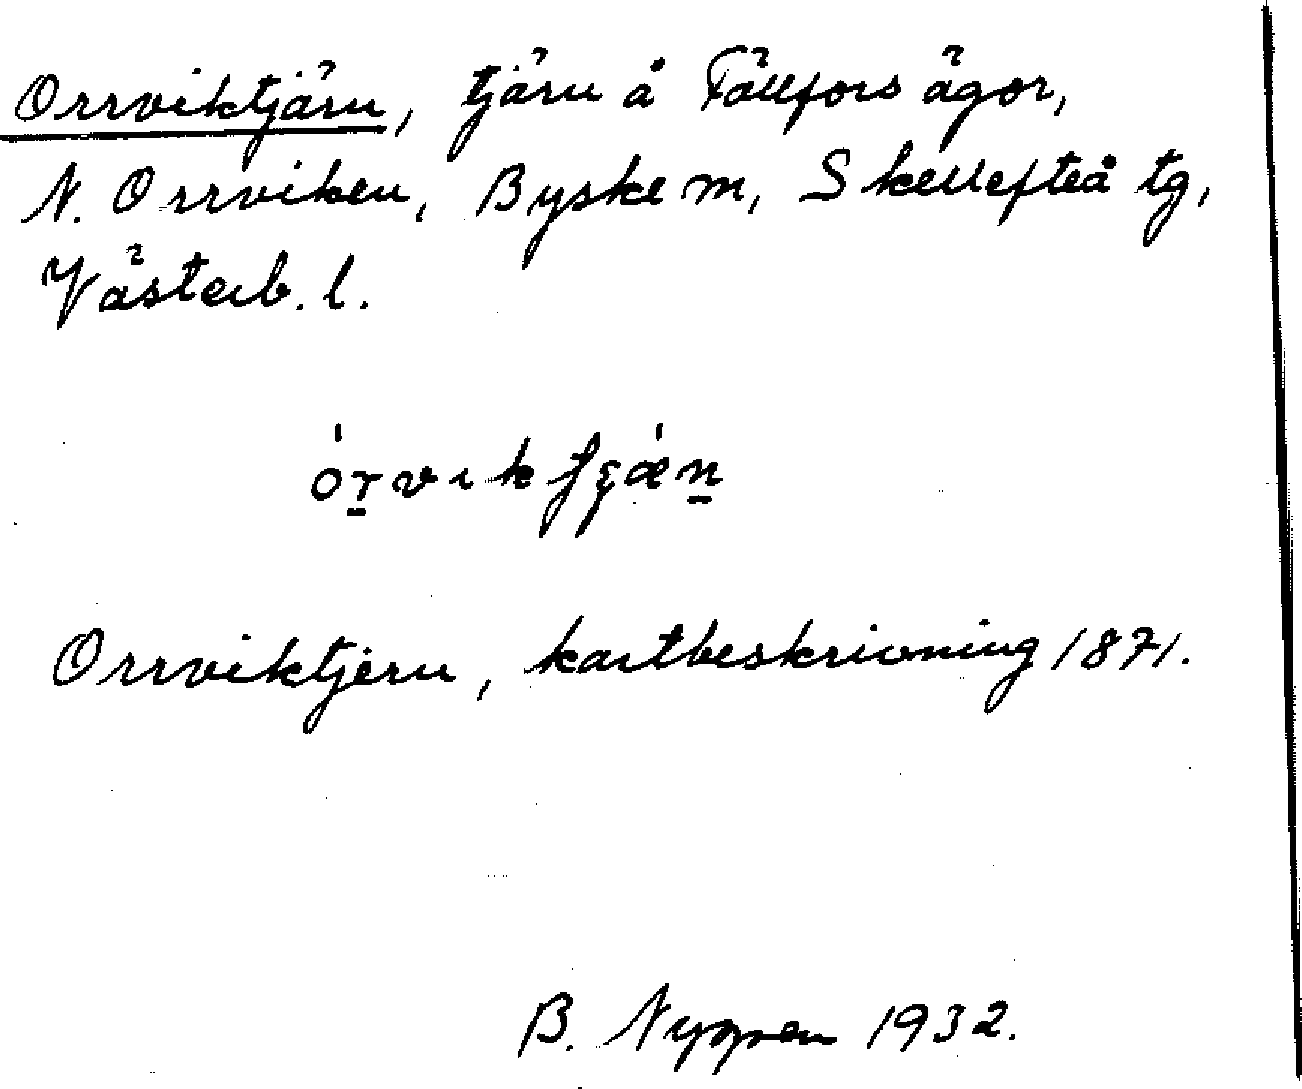 Orrviktjärn, tjärn å Fällfors ägor,
N. Orrviken, Byske m, Skellefteå tg,
Västerb. l.
Orrviktjern, kartbeskrivning 1871.
B. Nygren 1932.